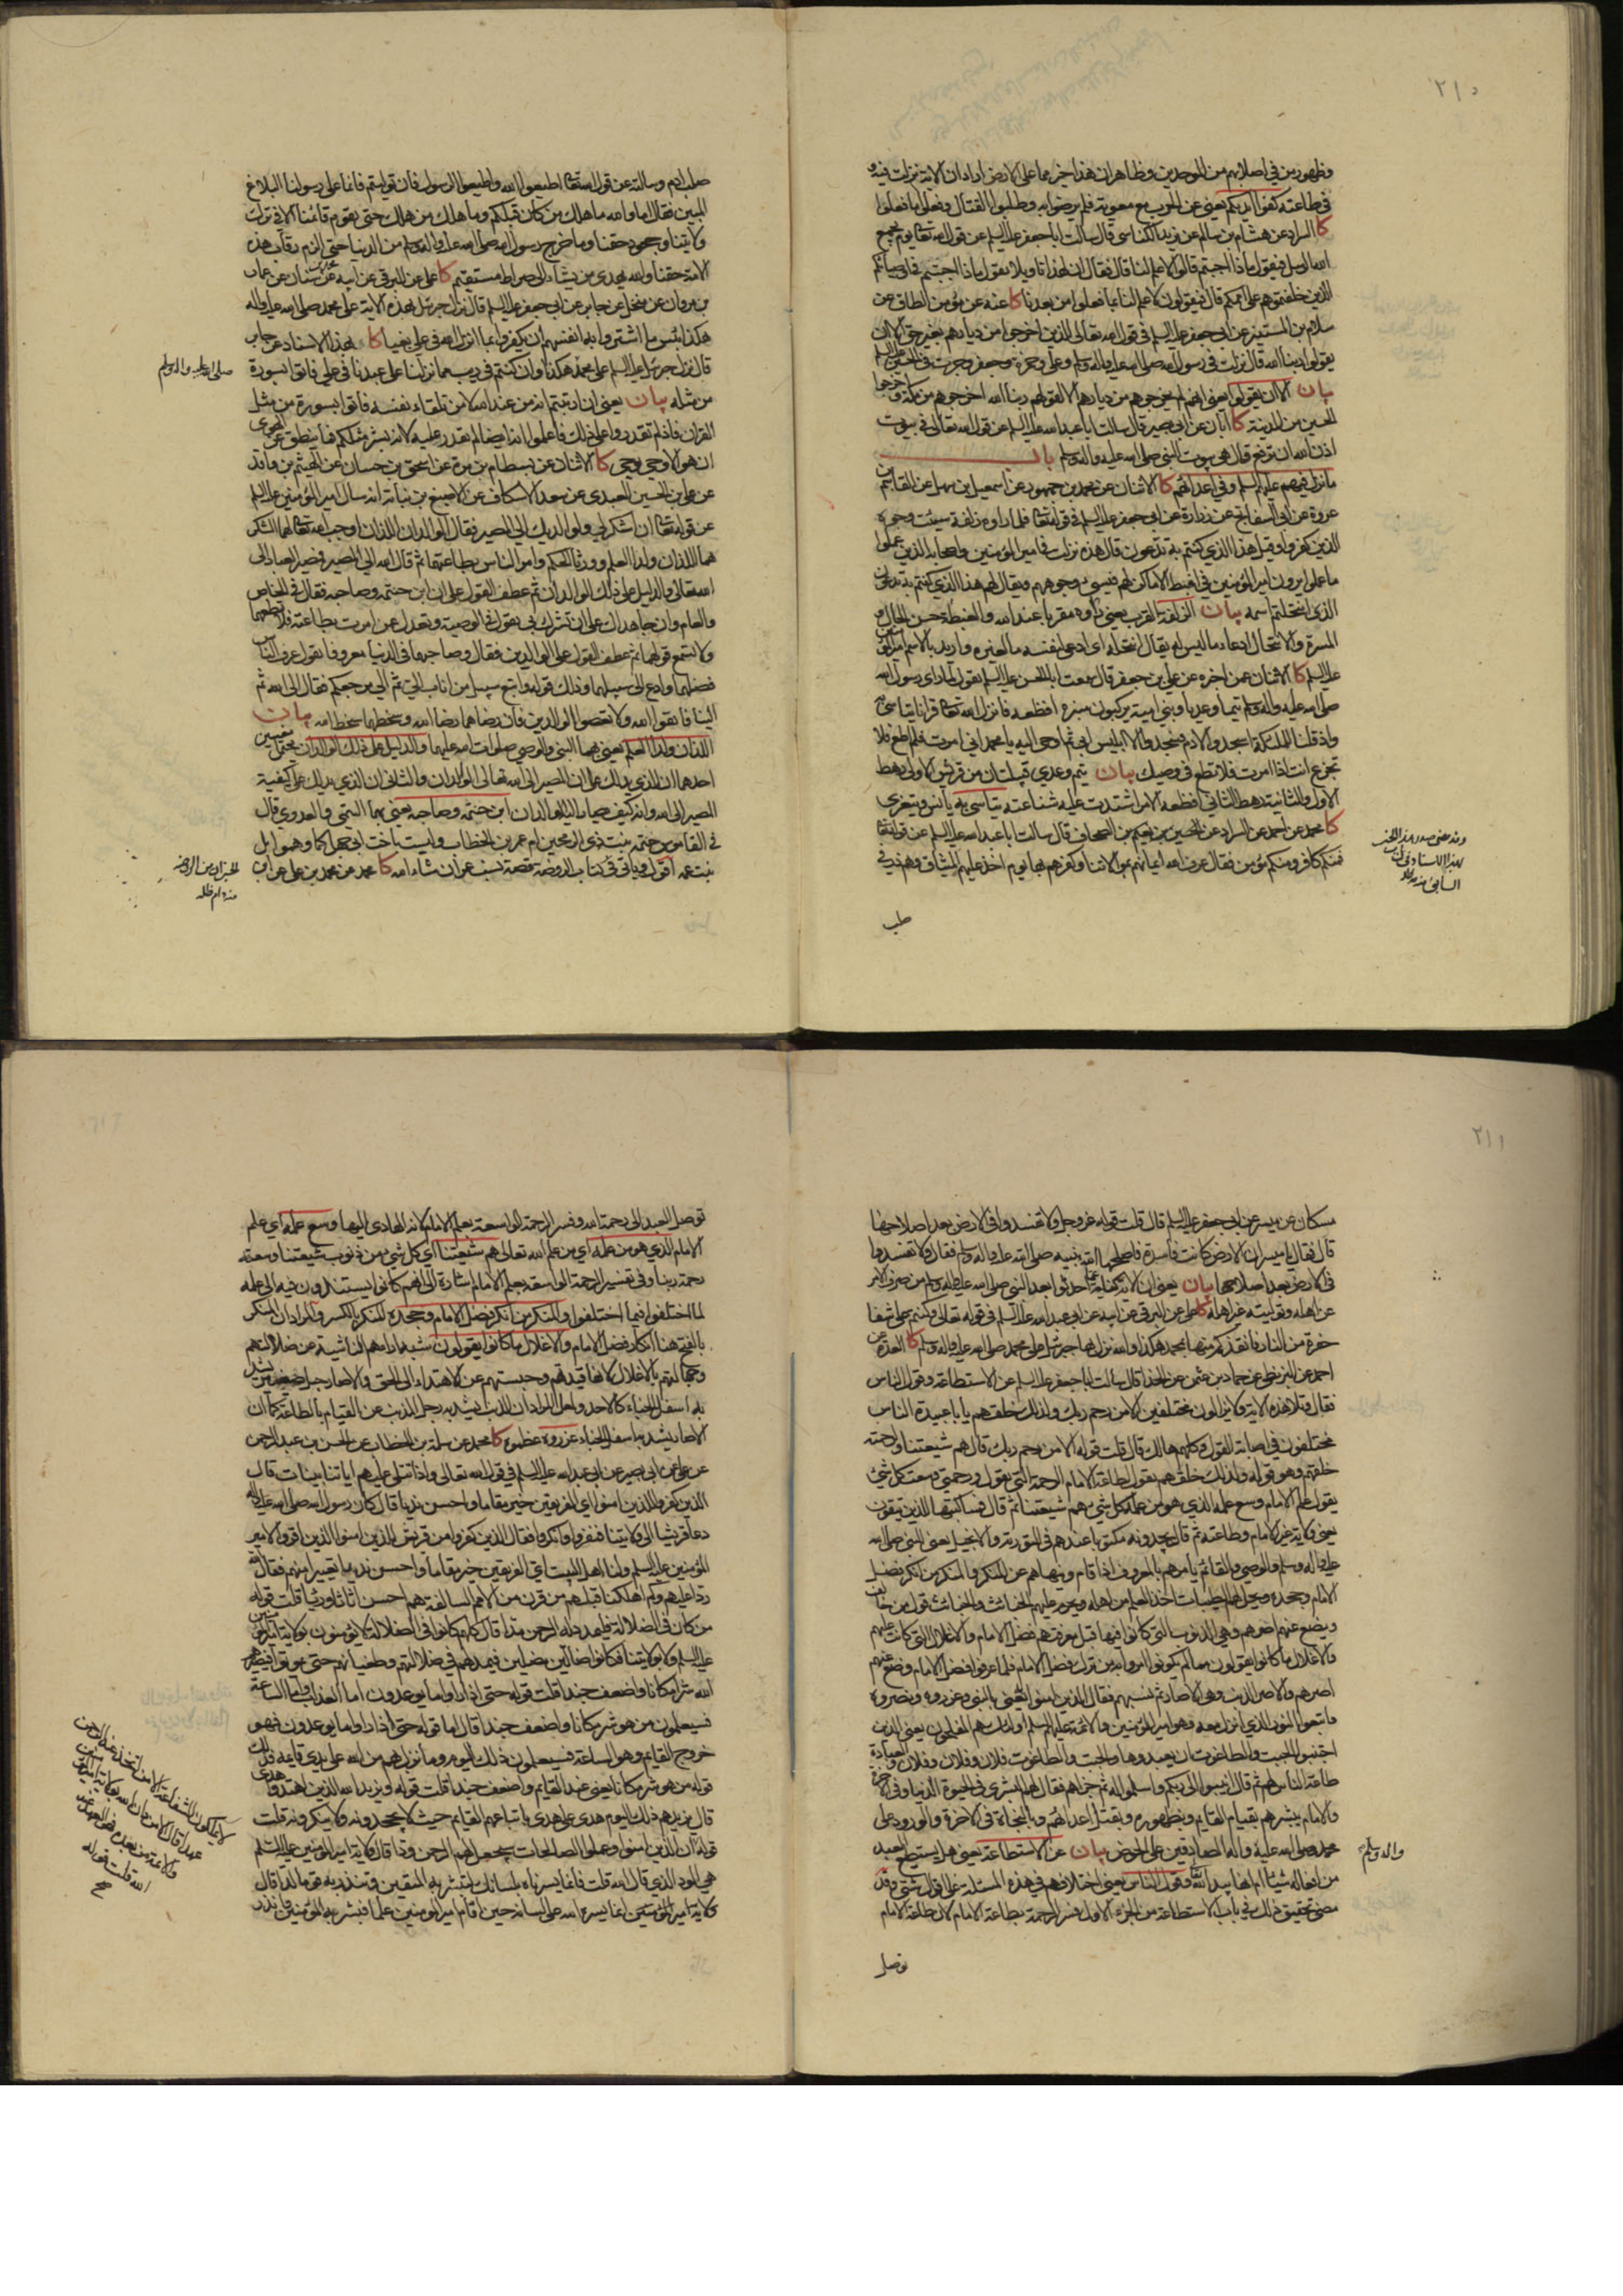 ٢١٠
وظهورين في اصلابهم من الموحدين وظاهر ان هذا خبر مما على الارض اراد ان الاية نزلت فيه و
في طاعته كفوا ايديكم يعني عن الحرب مع معوية فلم يرضوا به وطلبوا القتال وفعلوا ما فعلوا
كا السراد عن هشام بن سالم عن يزيد الكناسي قال سالت ابا جعفر عليه السلم عن قول الله تعالى يوم يجمع
الله الرسل فيقول ماذا اجبتم قالوا لا علم لنا قال فقال ان لهذا تاويلا يقول ماذا اجبتم في اوصيائكم
الذين خلفتموهم على اممكم قال فيقولون لا علم لنا بما فعلوا من بعدنا كا عنه عن مؤمن الطاق عن
سلام بن المستنير عن ابي جعفر عليه السلم في قول الله تعالى الذين اخرجوا من ديارهم بغير حق الا ان
يقولوا ربنا الله قال نزلت في رسول الله صلى الله عليه واله وسلم وعلي وحمزة وجعفر وجرت في الحسين عليه السلم
بيان الا ان يقولوا يعني انهم لم يخرجوهم من ديارهم الا لقولهم ربنا الله اخرجوهم من مكة واخرجوا
الحسين من المدينة كا ابان عن ابي بصير قال سالت ابا عبد الله عليه السلم عن قول الله تعالى في بيوت
اذن الله ان ترفع قال هي بيوت النبي صلى الله عليه واله وسلم باب
ما نزل فيهم عليهم السلم وفي اعدائهم كا الاثنان عن محمد بن جمهور عن اسمعيل بن سهل عن القاسم بن
عروة عن ابي السفاتج عن زرارة عن ابي جعفر عليه السلم في قوله تعالى فلما راوه زلفة سيئت وجوه
الذين كفروا وقيل هذا الذي كنتم به تدعون قال هذه نزلت في امير المؤمنين واصحابه الذين عملوا
ما عملوا يرون امير المؤمنين في اغبط الاماكن لهم فيسيئ وجوههم ويقال لهم هذا الذي كنتم به تدعون
الذي انتحلتم اسمه بيان الزلفة القرب يعني راوه مقربا عند الله والغبطة حسن الحال و
المسرة والانتحال ادعاء ما ليس له يقال انتحله اي ادعى لنفسه ما لغيره واريد بالاسم امير المؤمنين
عليه السلم كا الاثنان عن اخبره عن علي بن جعفر قال سمعت ابا الحسن عليه السلم يقول لما راى رسول الله
صلى الله عليه واله وسلم تيما وعديا وبني امية يركبون منبره افظعه فانزل الله تعالى قرانا يتاسى به
واذ قلنا للملئكة اسجدوا لادم فسجدوا الا ابليس ابى ثم اوحى اليه يا محمد اني امرت فلم اطع فلا
تجزع انت اذا امرت فلم تطع في وصيك بيان تيم وعدي قبيلتان من قريش الاولى رهط
الاول والثانية رهط الثاني افظعه الامر اشتدت عليه شناعته يتاسى به يانس ويتعزى
كا محمد عن احمد عن السراد عن الحسين بن نعيم بن الصحاف قال سالت ابا عبد الله عليه السلم عن قوله تعالى
فمنكم كافر ومنكم مؤمن فقال عرف الله ايمانهم بموالاتنا وكفرهم بها يوم اخذ عليهم الميثاق وهم ذر في
صلب
صلب ادم وسالته عن قول الله تعالى اطيعوا الله واطيعوا الرسول فان توليتم فانما على رسولنا البلاغ
المبين فقال اما والله ما هلك من كان قبلكم وما هلك من هلك حتى يقوم قائمنا الا في ترك
ولايتنا وجحود حقنا وما خرج رسول الله صلى الله عليه واله وسلم من الدنيا حتى الزم رقاب هذه
الامة حقنا والله يهدي من يشاء الى صراط مستقيم كا علي عن البرقي عن ابيه عن محمد بن سنان عن عمار
بن مروان عن منخل عن جابر عن ابي جعفر عليه السلم قال نزل جبرئيل بهذه الاية على محمد صلى الله عليه واله
هكذا بئس ما اشتروا به انفسهم ان يكفروا بما انزل الله في علي بغيا كا بهذا الاسناد عن جابر
قال نزل جبرئيل عليه السلم على محمد هكذا وان كنتم في ريب مما نزلنا على عبدنا في علي فاتوا بسورة
صلى الله عليه واله وسلم
من مثله بيان يعني ان ارتبتم انه من عند الله لا من تلقاء نفسه فاتوا بسورة من مثل
القران فاذا لم تقدروا على ذلك فاعلموا انه ايضا لم يقدر عليه لانه بشر مثلكم فما ينطق عن الهوى
ان هو الا وحي يوحى كا الاثنان عن بسطام بن مرة عن اسحق بن حسان عن الهيثم بن واقد
عن علي بن الحسين العبدي عن سعد الاسكاف عن الاصبغ بن نباتة انه سال امير المؤمنين عليه السلم
عن قوله تعالى ان اشكر لي ولوالديك الي المصير فقال الوالدان اللذان اوجب الله تعالى لهما الشكر
هما اللذان ولدا العلم وورثا الحكم وامر الناس بطاعتهما ثم قال الله الي المصير فمصير العباد الى
الله تعالى والدليل على ذلك الوالدان ثم عطف القول على ابن حنتمة وصاحبه فقال في الخاص
والعام وان جاهداك على ان تشرك بي يقول في الوصية وتعدل عمن امرت بطاعته فلا تطعهما
ولا تسمع قولهما ثم عطف القول على الوالدين فقال وصاحبهما في الدنيا معروفا يقول عرف الناس
فضلهما وادع الى سبيلهما وذلك قوله واتبع سبيل من اناب الي ثم الي مرجعكم فقال الى الله ثم
الينا فاتقوا الله ولا تعصوا الوالدين فان رضاهما رضا الله وسخطهما سخط الله بيان
اللذان ولدا العلم يعني بهما النبي والوصي صلوات الله عليهما والدليل على ذلك الوالدان يحتمل معنيين
احدهما ان الذي يدلك على ان المصير الى الله تعالى الوالدان والثاني ان الذي يدلك على كيفية
المصير الى الله وانه كيف يصار اليه الوالدان ابن حنتمة وصاحبه يعني بهما التيمي والعدوي قال
في القاموس حنتمة بنت ذي الرمحين ام عمر بن الخطاب وليست باخت ابي جهل كما وهموا بل
بنت عمه اقول وياتي في كتاب الروضة قصة نسب عمر ان شاء الله كا محمد عن محمد بن علي عن ابن
٢١١
مسكان عن ميسر عن ابي جعفر عليه السلم قال قلت قوله عز وجل ولا تفسدوا في الارض بعد اصلاحها
قال فقال يا ميسر ان الارض كانت فاسدة فاصلحها الله بنبيه صلى الله عليه واله وسلم فقال ولا تفسدوا
في الارض بعد اصلاحها بيان يعني ان الاية كناية عما احدثوا بعد النبي صلى الله عليه واله وسلم من صرف الامر
عن اهله وتوليته غير اهله كا علي عن البرقي عن ابيه عن ابي عبد الله عليه السلم في قوله تعالى وكنتم على شفا
حفرة من النار فانقذكم منها بمحمد هكذا والله نزل بها جبرئيل على محمد صلى الله عليه واله وسلم كا العدة عن
احمد عن البزنطي عن حماد بن عثمن عن الحذاء قال سالت ابا جعفر عليه السلم عن الاستطاعة وقول الناس
فقال وتلا هذه الاية ولا يزالون مختلفين الا من رحم ربك ولذلك خلقهم يا با عبيدة الناس
مختلفون في اصابة القول وكلهم هالك قال قلت قوله الا من رحم ربك قال هم شيعتنا ولرحمته
خلقهم وهو قوله ولذلك خلقهم يقول لطاعة الامام الرحمة التي يقول ورحمتي وسعت كل شئ
يقول علم الامام ووسع علمه الذي هو من علمه كل شئ هم شيعتنا ثم قال فساكتبها للذين يتقون
يعني ولاية غير الامام وطاعته ثم قال يجدونه مكتوبا عندهم في التورية والانجيل يعني النبي صلى الله
عليه واله وسلم والوصي والقائم يامرهم بالمعروف اذا قام وينهاهم عن المنكر والمنكر من انكر فضل
الامام وجحده ويحل لهم الطيبات اخذ العلم من اهله ويحرم عليهم الخبائث والخبائث قول من خالف
ويضع عنهم اصرهم وهي الذنوب التي كانوا فيها قبل معرفتهم فضل الامام والاغلال التي كانت عليهم
والاغلال ما كانوا يقولون مما لم يكونوا امروا به من ترك فضل الامام فلما عرفوا فضل الامام وضع عنهم
اصرهم والاصر الذنب وهي الاصار ثم نسبهم فقال الذين امنوا به يعني بالنبي وعزروه ونصروه
واتبعوا النور الذي انزل معه وهو امير المؤمنين والائمة عليهم السلم اولئك هم المفلحون يعني الذين
اجتنبوا الجبت والطاغوت ان يعبدوها والجبت والطاغوت فلان وفلان وفلان والعبادة
طاعة الناس لهم ثم قال انيبوا الى ربكم واسلموا له ثم جزاهم فقال لهم البشرى في الحيوة الدنيا وفي الاخرة
والامام يبشرهم بقيام القايم وبظهوره وبقتل اعدائهم وبالنجاة في الاخرة والورود على
محمد صلى الله عليه واله الصادقين على الحوض بيان عن الاستطاعة يعني هل يستطيع العبد
من افعاله شيئا ام انها بيد الله وقول الناس يعني اختلافهم في هذه المسئلة على اقوال شتى وقد
مضى تحقيق ذلك في باب الاستطاعة من الجزء الاول وفسر الرحمة بطاعة الامام لان طاعة الامام
توصل
توصل العبد الى رحمة الله وفسر الرحمة الواسعة بعلم الامام لانه الهادي اليها وسع علمه اي علم
الامام الذي هو من علمه اي من علم الله تعالى هم شيعتنا اي كل شئ من ذنوب شيعتنا وسعته
رحمة ربنا وفي تفسير الرحمة الواسعة بعلم الامام اشارة الى انهم كانوا يستندون فيه الى علمه
لما اختلفوا فيما اختلفوا والمنكر من انكر فضل الامام وجحده المنكر بالكسر والمراد ان المنكر
بالفتح هنا انكار فضل الامام والاغلال ما كانوا يقولون شبه اراءهم الناشية عن ضلالتهم
وجهالتهم بالاغلال لانها قيدتهم وحبستهم عن الاهتداء الى الحق والاصار حبل صغير يشد
به اسفل الخباء كالاحد ولعل المراد ان الذنب يشد به رجل المذنب عن القيام بالطاعة كما ان
الاصار يشد به اسفل الخباء عزروه عظموه كا محمد عن سلمة بن الخطاب عن الحسن بن عبد الرحمن
عن علي عن ابي بصير عن ابي عبد الله عليه السلم في قول الله تعالى واذا تتلى عليهم اياتنا بينات قال
الذين كفروا للذين امنوا اي الفريقين خير مقاما واحسن نديا قال كان رسول الله صلى الله عليه واله
دعا قريشا الى ولايتنا فنفروا وانكروا فقال الذين كفروا من قريش للذين امنوا الذين اقروا لامير
المؤمنين عليه السلم ولنا اهل البيت اي الفريقين خير مقاما واحسن نديا تعييرا منهم فقال الله
ردا عليهم وكم اهلكنا قبلهم من قرن من الامم السالفة هم احسن اثاثا ورئيا قلت قوله
من كان في الضلالة فليمدد له الرحمن مدا قال كلهم كانوا في الضلالة لا يؤمنون بولاية امير المؤمنين
عليه السلم ولا بولايتنا فكانوا ضالين مضلين فيمد لهم في ضلالتهم وطغيانهم حتى يموتوا فيصيرهم
الله شرا مكانا واضعف جندا قلت قوله حتى اذا راوا ما يوعدون اما العذاب واما الساعة
فسيعلمون من هو شر مكانا واضعف جندا قال اما قوله حتى اذا راوا ما يوعدون فهو
خروج القايم وهو الساعة فسيعلمون ذلك اليوم وما نزل بهم من الله على يدي قايمه فذلك
قوله من هو شر مكانا يعني عند القايم واضعف جندا قلت قوله ويزيد الله الذين اهتدوا هدى
قال يزيدهم ذلك اليوم هدى على هدى باتباعهم القايم حيث لا يجحدونه ولا ينكرونه قلت
قوله ان الذين امنوا وعملوا الصالحات سيجعل لهم الرحمن ودا قال ولاية امير المؤمنين عليه السلم
هي الود الذي قال الله قلت فانما يسرناه بلسانك لتبشر به المتقين وتنذر به قوما لدا قال
انما يسره الله على لسانه حين اقام امير المؤمنين علما فبشر به المؤمنين وانذر
لا يملكون الشفاعة الا من اتخذ عند الرحمن
عهدا قال الا من دان الله بولاية امير المؤمنين
والائمة من بعده فهو العهد عند
الله قلت قوله
صح
واله وسلم